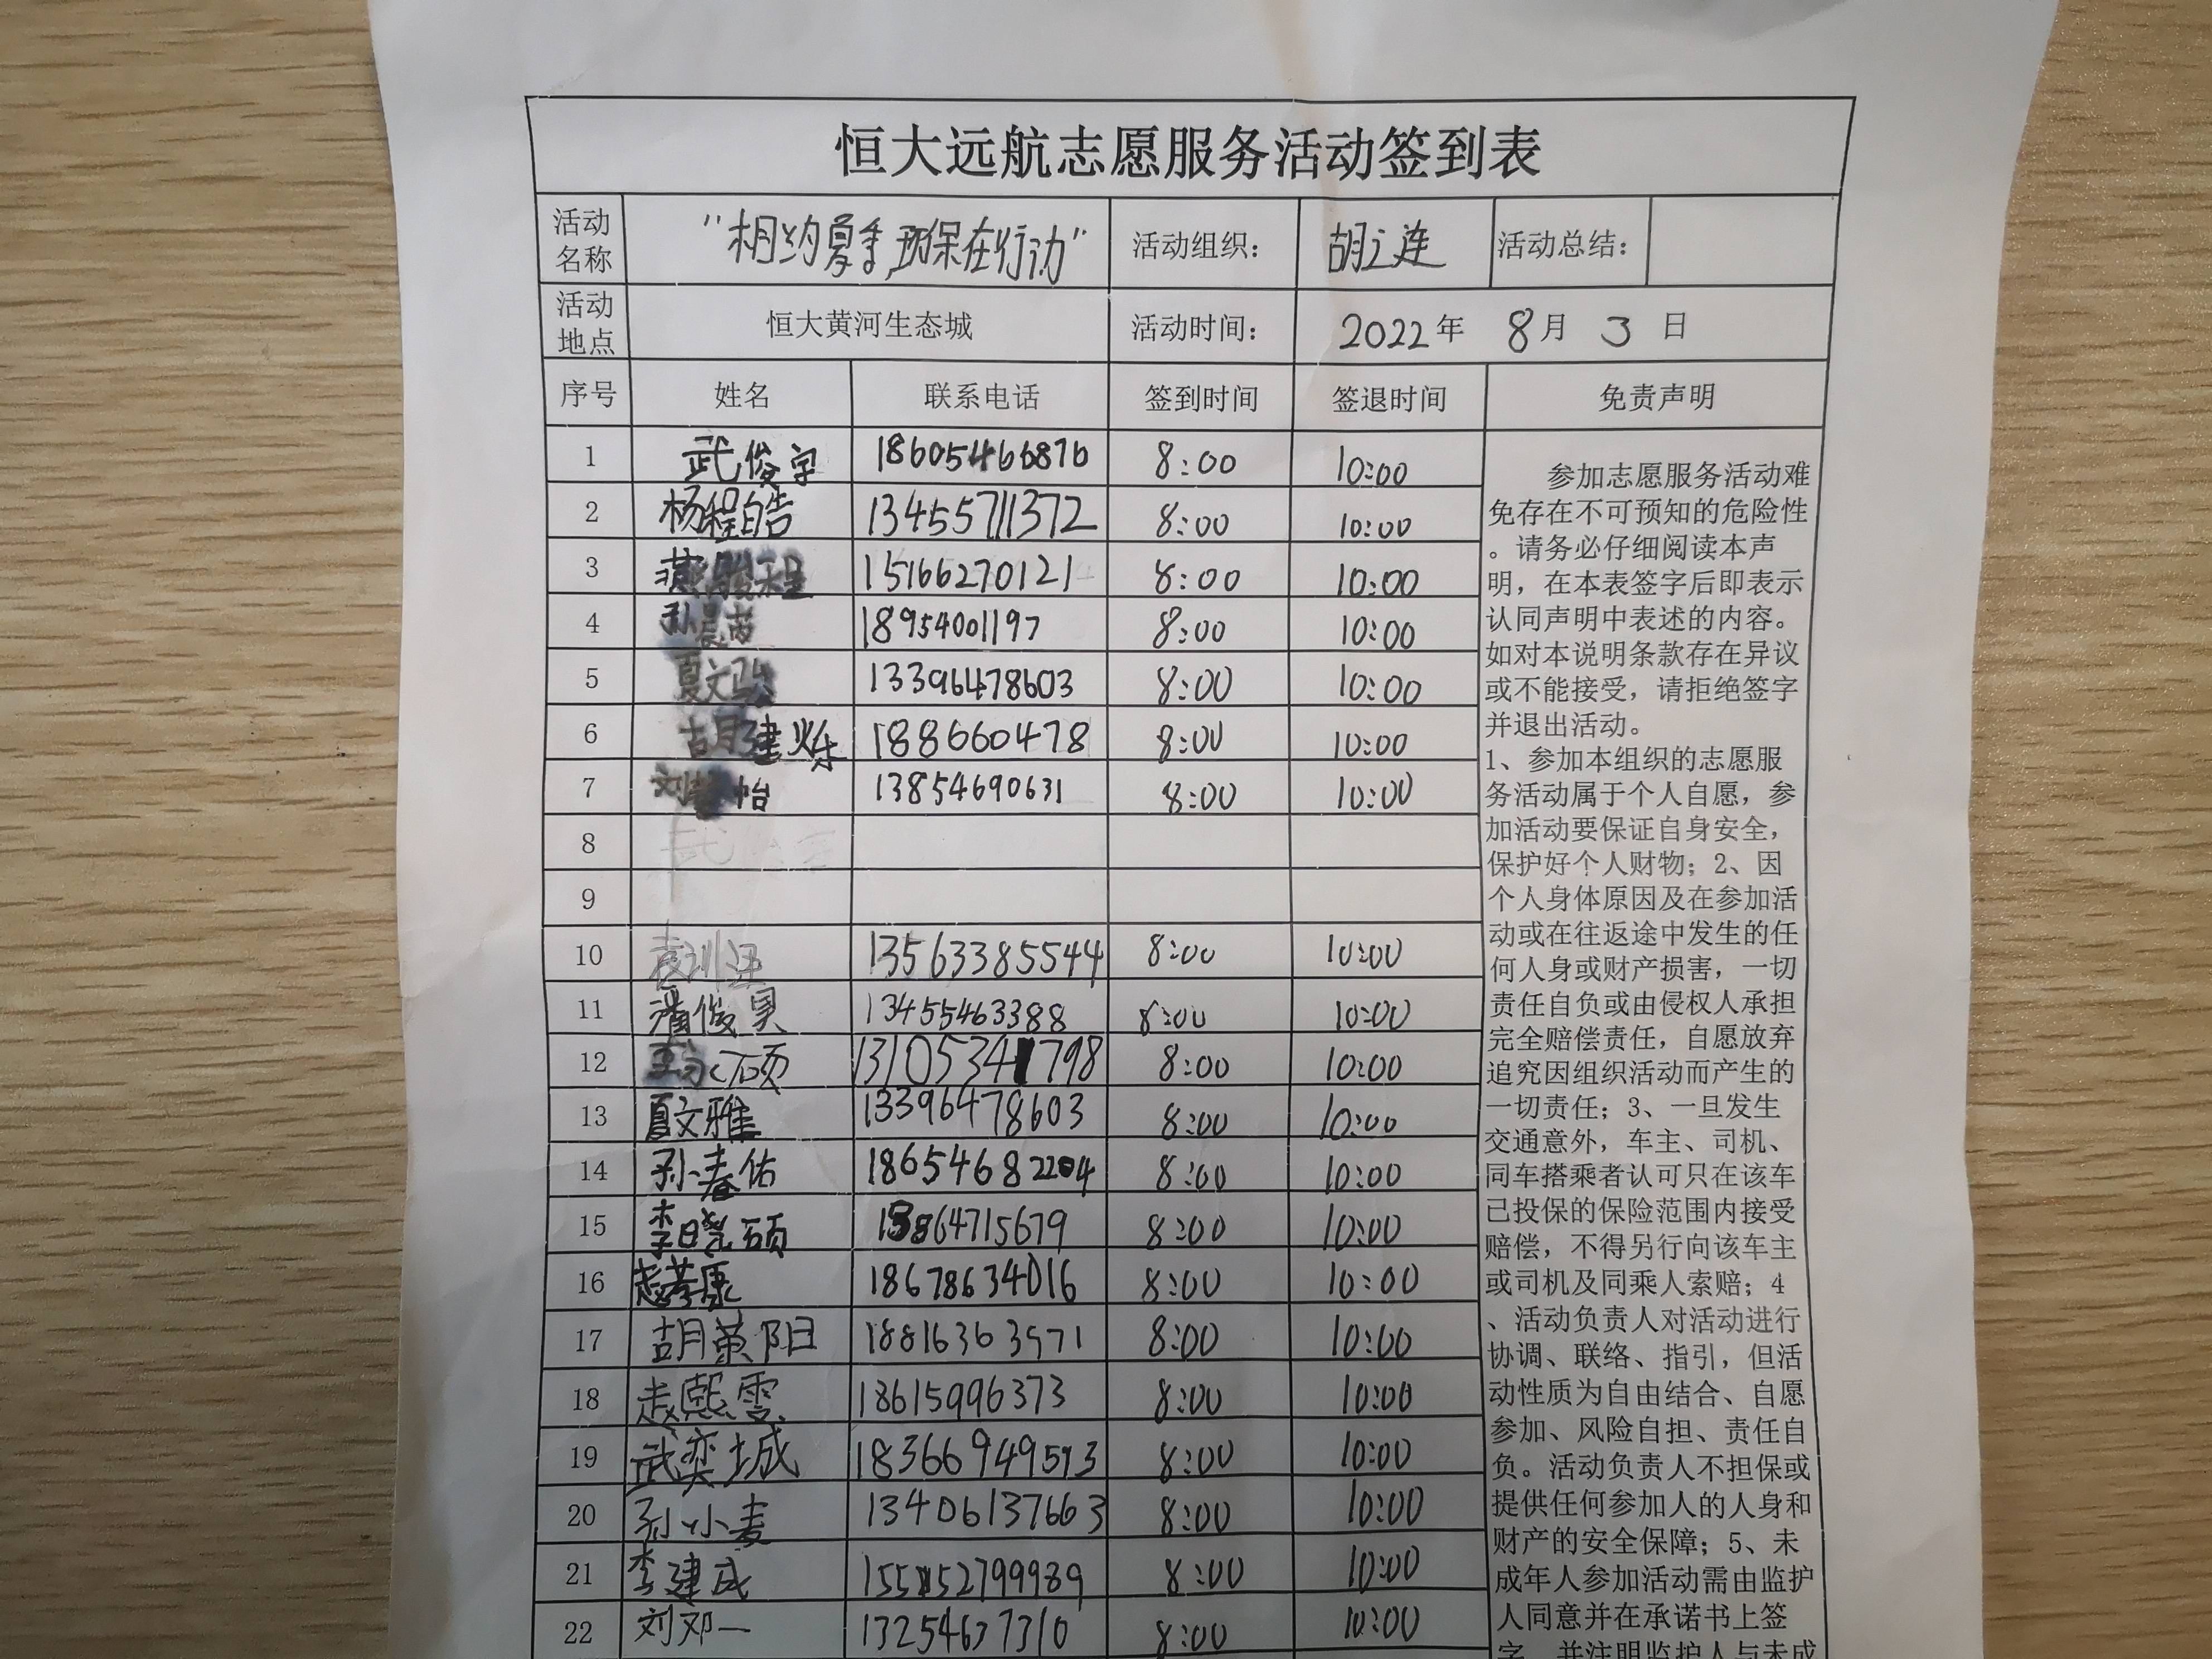 恒大远航志愿服务活动签到表
活动名称 “相约夏季,环保在行动” 活动组织： 胡 连 活动总结：
活动地点 恒大黄河生态城 活动时间： 2022年 8月 3日
序号 姓名 联系电话 签到时间 签退时间 免责声明
1 武俊宇 18605466876 8:00 10:00
2 杨程皓 13455711372 8:00 10:00
3 15166270121 8:00 10:00
4 孙晨茜 18954001197 8:00 10:00
5 夏文 13396478603 8:00 10:00
6 胡建烁 1888660478 8:00 10:00
7 刘 怡 13854690631 8:00 10:00
8
9
10 袁训 13563385544 8:00 10:00
11 潘俊昊 13455463388 8:00 10:00
12 硕 13105341798 8:00 10:00
13 夏文雅 13396478603 8:00 10:00
14 孙春佑 18654682204 8:00 10:00
15 李晓硕 13864715679 8:00 10:00
16 赵 康 18678634016 8:00 10:00
17 胡 阳 18816363571 8:00 10:00
18 赵熙雯 18615996373 8:00 10:00
19 武奕城 18366949513 8:00 10:00
20 孙小麦 13406137663 8:00 10:00
21 李建成 8:00 10:00
22 刘邓一 13254637310 8:00 10:00
参加志愿服务活动难
免存在不可预知的危险性
。请务必仔细阅读本声
明，在本表签字后即表示
认同声明中表述的内容。
如对本说明条款存在异议
或不能接受，请拒绝签字
并退出活动。
1、参加本组织的志愿服
务活动属于个人自愿，参
加活动要保证自身安全，
保护好个人财物；2、因
个人身体原因及在参加活
动或在往返途中发生的任
何人身或财产损害，一切
责任自负或由侵权人承担
完全赔偿责任，自愿放弃
追究因组织活动而产生的
一切责任；3、一旦发生
交通意外，车主、司机、
同车搭乘者认可只在该车
已投保的保险范围内接受
赔偿，不得另行向该车主
或司机及同乘人索赔；4
、活动负责人对活动进行
协调、联络、指引，但活
动性质为自由结合、自愿
参加、风险自担、责任自
负。活动负责人不担保或
提供任何参加人的人身和
财产的安全保障；5、未
成年人参加活动需由监护
人同意并在承诺书上签
字，并注明监护人与未成